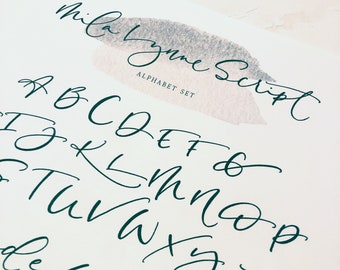 Mila Lynne Script
ALPHABET SET
A B C D E F G
I J K L M N O P
S T U V W X y
d e